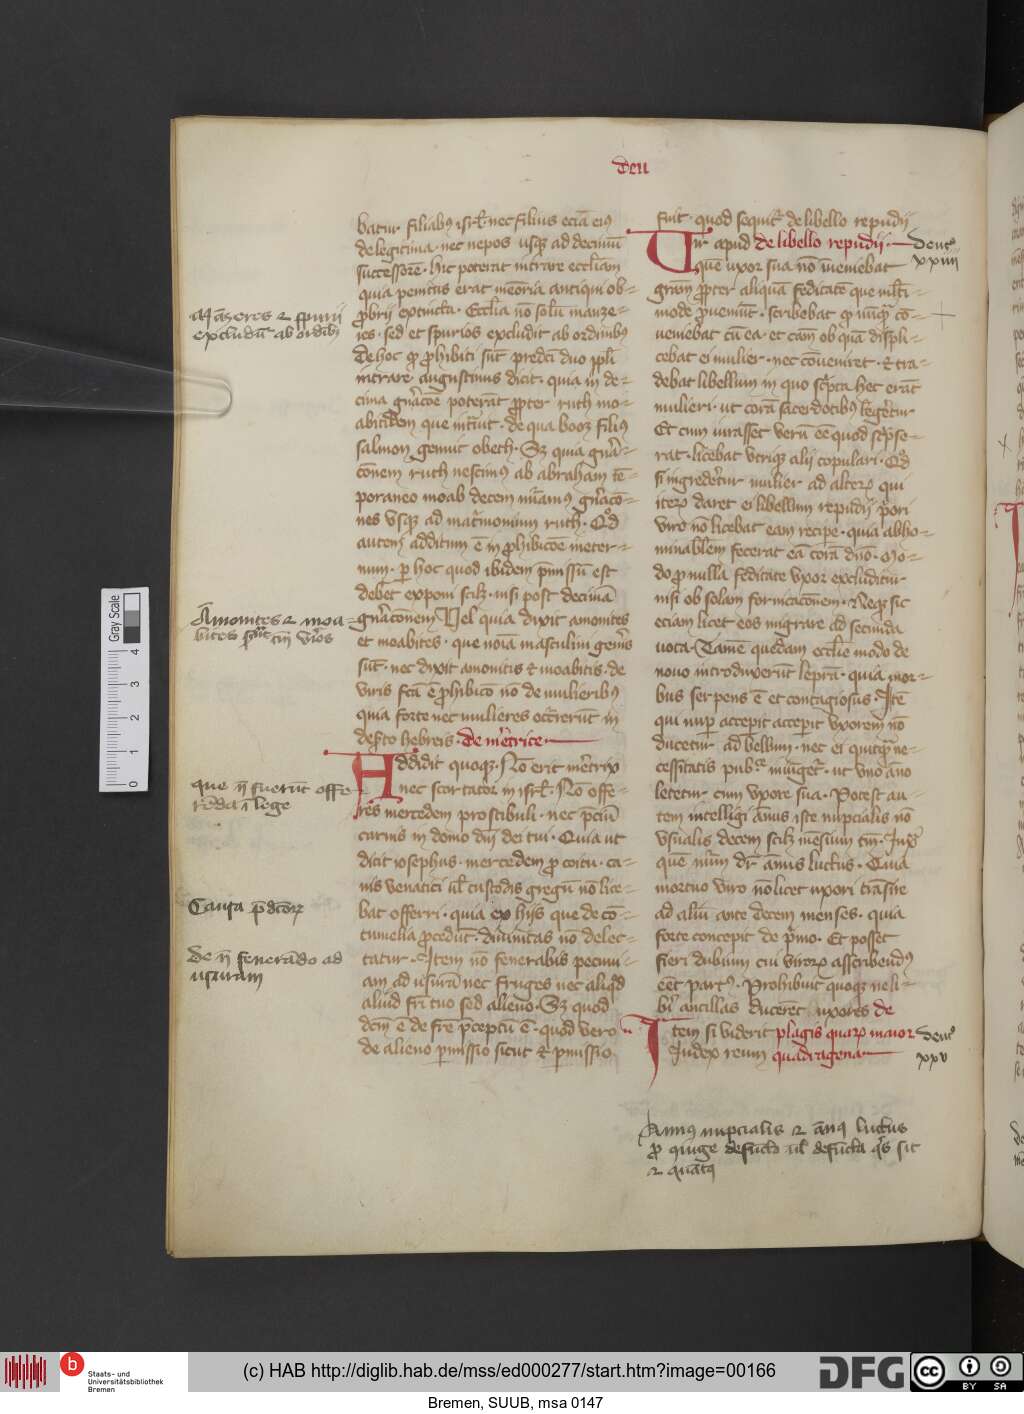 deu
batur filiabus isrl. nec filius eciā eius
de legitima. nec nepos usque ad decimū
successorē. hic poterat intrare eccliam
quia penitus erat memoria antiqui ob-
probrij extincta. Ecclia nō solū manze-
res. sed et spurios excludit ab ordinibus
De hoc quod prohibiti sūt predcī duo ppli
intrare. augustinus dicit. quia in de-
cima gnācōe poterat propter ruth mo-
abitidem que intrāuit. de qua booz filius
salmon genuit obeth. Sz quia gnā-
cōnem ruth nescimus ab abraham tē-
poraneo moab decem inuenimus gnācō-
nes usque ad matrimonium ruth. Quod
autem additum ē in prohibicōe in eter-
num. per hoc quod ibidem pmissū est
debet exponi scilz. nisi post decimā
gnācōnem Vel quia dixit amonites
et moabites. que noīa masculini generis
sūt. nec dixit amonitis et moabitis. de
viris fcā ē prohibicō nō de mulieribus
quia forte nec mulieres occurrerūt in
deserto hebreis. de meretrice
Addidit quoque. Nō erit meretrix
nec scortator in isrl. Nō offe-
res mercedem prostibuli. nec preciū
carnis in domo dni dei tui. Quia ut
dicit iosephus. mercedem pro coitu. ca-
nis venatici uel custodis gregū nō lice-
bat offerri. quia ex hijs que de cō-
tumelia procedūt. diuinitas nō delec-
tatur. Item nō fenerabis pecuni-
am ad usurā nec fruges nec aliquod
aliud fri tuo sed alieno. Sz quod
dcm ē de fre preceptū ē. quod vero
de alieno permissio sicut et permissio
fuit. quod sequitur de libello repudij
Cur apud de libello repudij.
quē uxor sua nō inueniebat
gram propter aliquā feditatē que multi-
mode prouenīt. scribebat quod nunquam cō-
ueniebat cū ea. et cām ob quā displi-
cebat ei mulier. nec cōueniret. et tra-
debat libellum in quo scripta hec erāt
mulieri. ut corā sacerdotibus legeretur
Et cum iurasset verū eē quod scripse-
rat. licebat utrique alii copulari. Quod
si ingrederetur mulier ad alterum qui
iterum daret ei libellum repudij priori
viro nō licebat eam recipe. quia abho-
minabilem fecerat eā corā dnō. Mo-
do pro nulla feditate uxor excluditur
nisi ob solam fornicacōnem. Neque sic
eciam licet eos migrare ad secunda
uota. Tamē quedam ecclie modo de
nouo introduxerūt leprā. quia mor-
bus serpens ē et contagiosus. Itē
qui nuper accepit accepit uxorem nō
ducetur ad bellum. nec ei quicquam ne-
cessitatis publica iniungetur. ut uno āno
letetur cum uxore sua. Potest au-
tem intelligi ānus iste nupcialis nō
usualis decem scilz mēsium tm. Iuxta
quē nrm dr ānus luctus. Quia
mortuo viro nō licet uxori trāsire
ad aliū ante decem menses. quia
forte concepit de primo. Et posset
fieri dubium cui virorum asscribendus
eēt partus. Prohibuit quoque ne li-
beri ancillas ducerēt uxores de
Item si viderit plagis quarum maior
Iudex reum quadragena
Māzeres et spurij
excludūtur ab ordibus
Amonites et moa-
bites sunt tm viros
que nō fuerūt offe-
renda ī lege
Causa pdcōrum
de nō fenerādo ad
usuram
deut
xxiiii
deut
xxv
Annus nupcialis et ānus luctus
pro coniuge defūcto uel defūcta quis sit
et quātus
Gray Scale
0 1 2 3 4
b
Staats- und
Universitätsbibliothek
Bremen
(c) HAB http://diglib.hab.de/mss/ed000277/start.htm?image=00166
DFG
cc
BY SA
Bremen, SUUB, msa 0147